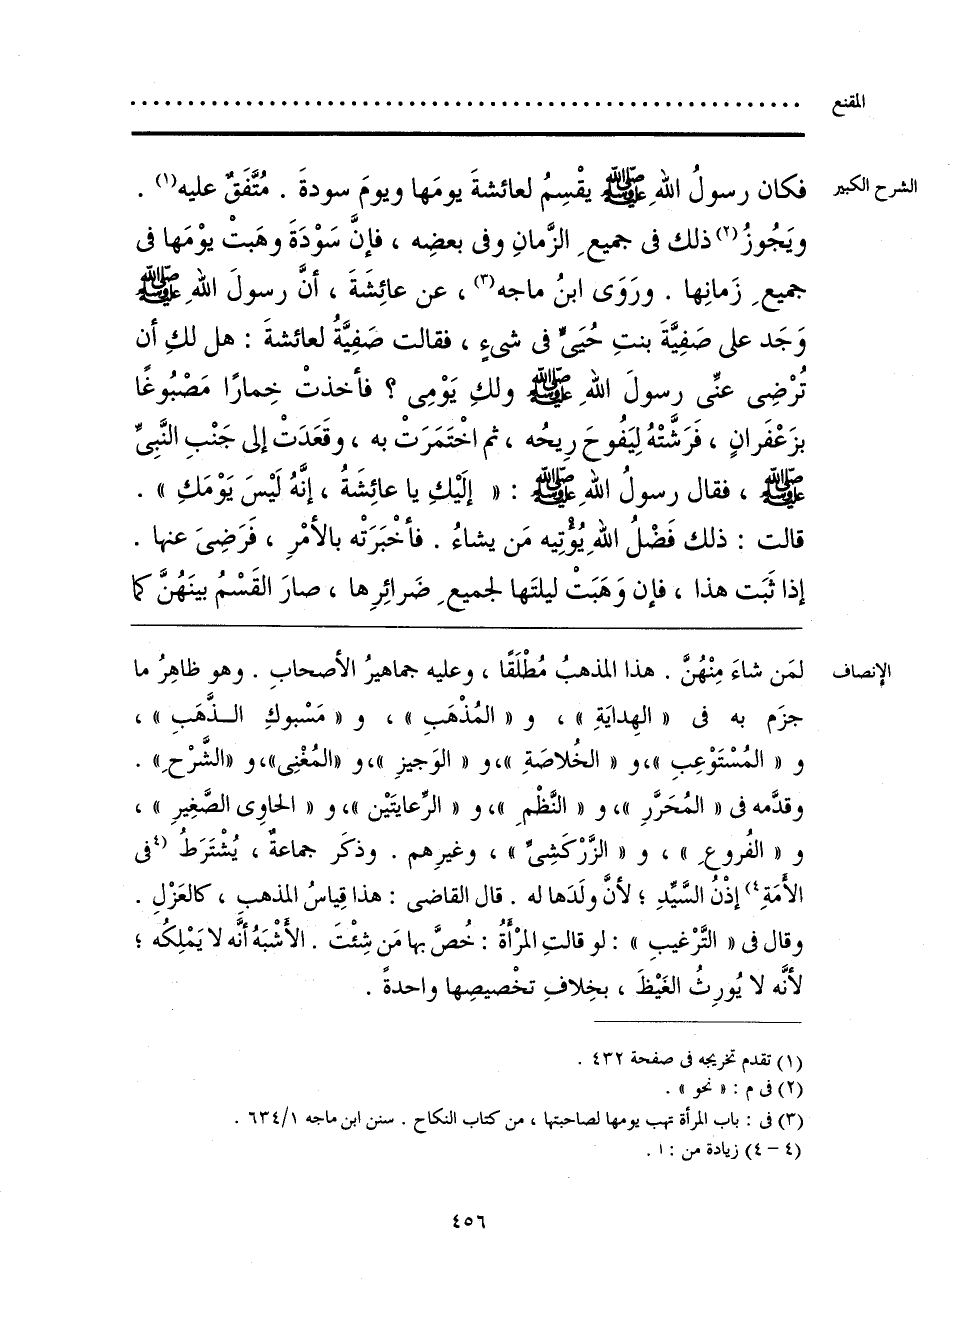 المقنع ............................................................
الشرح الكبير فكان رسولُ اللهِ ﷺ يقْسِمُ لعائشةَ يومَها ويومَ سودةَ . مُتَّفَقٌ عليه(١) .
ويَجُوزُ(٢) ذلك فى جميعِ الزَّمانِ وفى بعضِه ، فإنَّ سَوْدَةَ وهَبتْ يوْمَها فى
جميعِ زَمانِها . ورَوَى ابنُ ماجه(٣) ، عن عائِشَةَ ، أنَّ رسولَ اللهِ ﷺ
وَجَد على صَفِيَّةَ بنتِ حُيَىٍّ فى شىءٍ ، فقالت صَفِيَّةُ لعائشةَ : هل لكِ أن
تُرْضِى عنِّى رسولَ اللهِ ﷺ ولكِ يَوْمِى ؟ فأخذتْ خِمارًا مَصْبُوغًا
بزَعْفَرانٍ ، فَرَشَّتْهُ لِيَفُوحَ رِيحُه ، ثم اخْتَمَرَتْ به ، وقَعَدَتْ إلى جَنْبِ النَّبِىِّ
ﷺ ، فقال رسولُ اللهِ ﷺ : « إلَيْكِ يا عائِشَةُ ، إنَّهُ لَيْسَ يَوْمَكِ » .
قالت : ذلك فَضْلُ اللهِ يُؤْتِيه مَن يشاءُ . فأخْبَرَتْه بالأمْرِ ، فَرَضِىَ عنها .
إذا ثَبَت هذا ، فإن وَهَبَتْ ليلتَها لجميعِ ضَرائِرِها ، صارَ القَسْمُ بينَهُنَّ كما
الإنصاف لمَن شاءَ مِنْهُنَّ . هذا المذهبُ مُطْلَقًا ، وعليه جماهيرُ الأصحابِ . وهو ظاهِرُ ما
جزَم به فى « الهِدايَةِ » ، و « المُذْهَبِ » ، و « مَسْبوكِ الذَّهَبِ » ،
و « المُسْتَوْعِبِ » ، و « الخُلاصَةِ » ، و « الوَجيزِ » ، و « المُغْنِى » ، و « الشَّرْحِ » .
وقدَّمه فى « المُحَرَّرِ » ، و « النَّظْمِ » ، و « الرِّعايتَيْن » ، و « الحاوِى الصَّغِيرِ » ،
و « الفُروعِ » ، و « الزَّرْكَشِىِّ » ، وغيرِهم . وذكَر جماعةٌ ، يُشْتَرَطُ (٤فى
الأمَةِ٤) إذْنُ السَّيِّدِ ؛ لأنَّ ولَدَها له . قال القاضى : هذا قِياسُ المذهبِ ، كالعَزْلِ .
وقال فى « التَّرْغيبِ » : لو قالتِ المرْأةُ : خُصَّ بها مَن شِئْتَ . الأَشْبَهُ أنَّه لا يَمْلِكُه ؛
لأنَّه لا يُورِثُ الغَيْظَ ، بخِلافِ تخْصيصِها واحدةً .
(١) تقدم تخريجه فى صفحة ٤٣٢ .
(٢) فى م : « نحو » .
(٣) فى : باب المرأة تهب يومها لصاحبتها ، من كتاب النكاح . سنن ابن ماجه ٦٣٤/١ .
(٤ - ٤) زيادة من : ١ .
٤٥٦